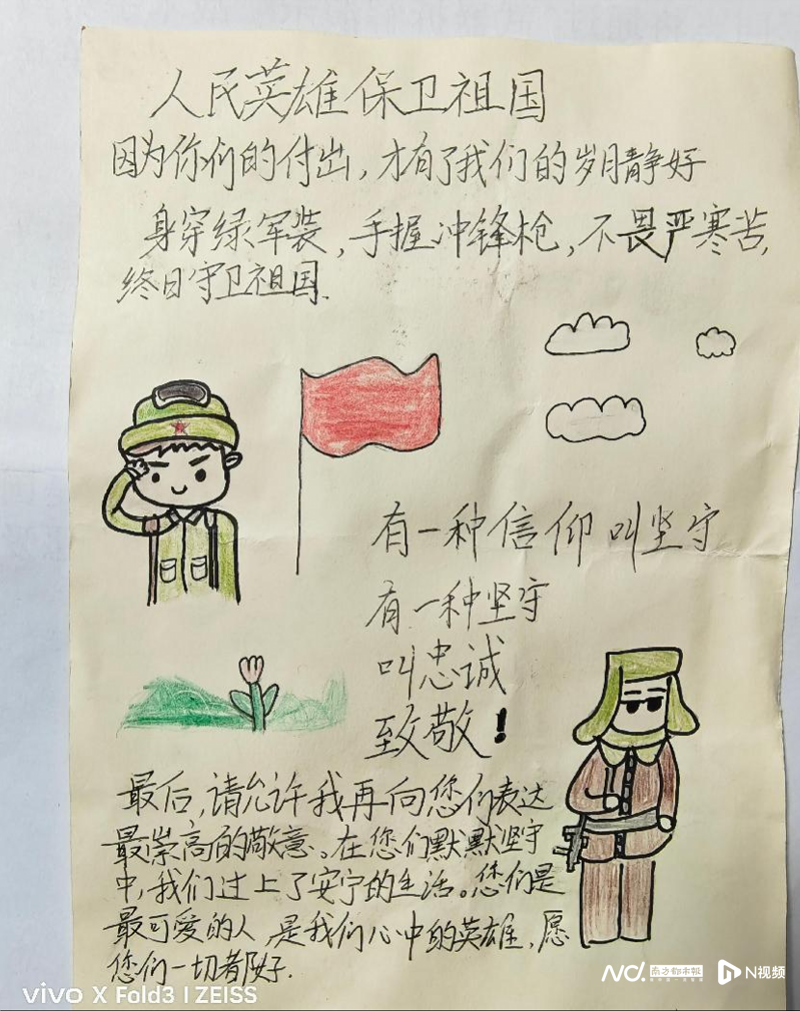 人民英雄保卫祖国
因为你们的付出，才有了我们的岁月静好
身穿绿军装，手握冲锋枪，不畏严寒苦，
终日守卫祖国.
有一种信仰叫坚守
有一种坚守
叫忠诚
致敬！
最后，请允许我再向您们表达
最崇高的敬意。在您们默默坚守
中，我们过上了安宁的生活。您们是
最可爱的人，是我们心中的英雄，愿
您们一切都好.
ND. 南方都市报 N视频
vivo X Fold3 | ZEISS